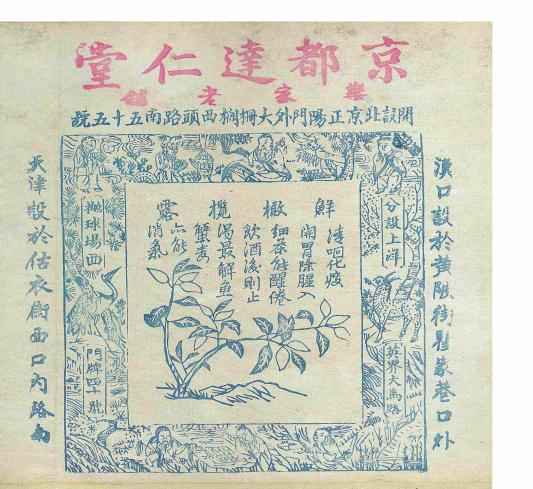 京都達仁堂
樂家老鋪
開設北京正陽門外大柵欄西頭路南五十五號
漢口設於黃陂街
巷口外
分設上洋
英界大馬路
拋球場西
門牌四十號
鮮橄欖露
清咽化痰
開胃除腥入
細茶能醒倦
飲酒後則止
渴最解魚
蟹毒
六能
消氣
天津設於估衣街西口內路南